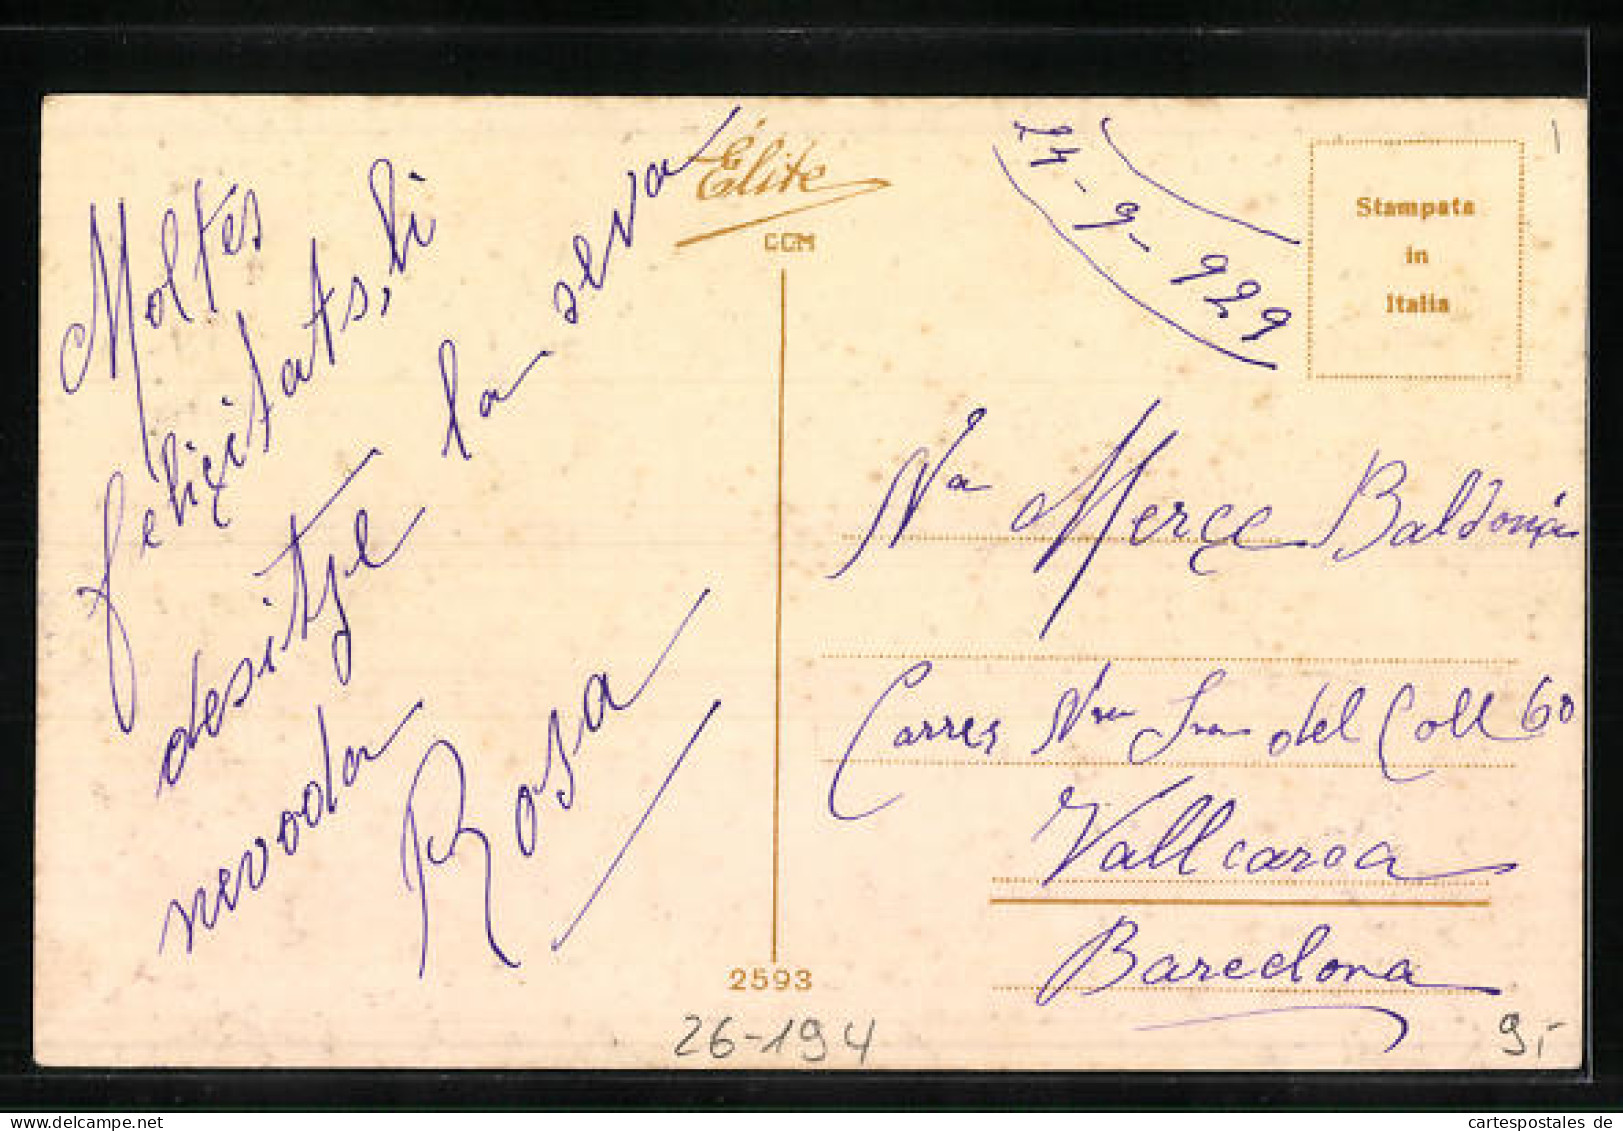 Moltes
feliçitats, li
desitje la seva
nevoda
Rosa
Élite
CCM
2593
24-9-929
Stampata
in
Italia
Na Merçe
Carrer Nra Sra del Coll 60
Vallcarca
Barcelona
26-194
9,-
cartespostales de